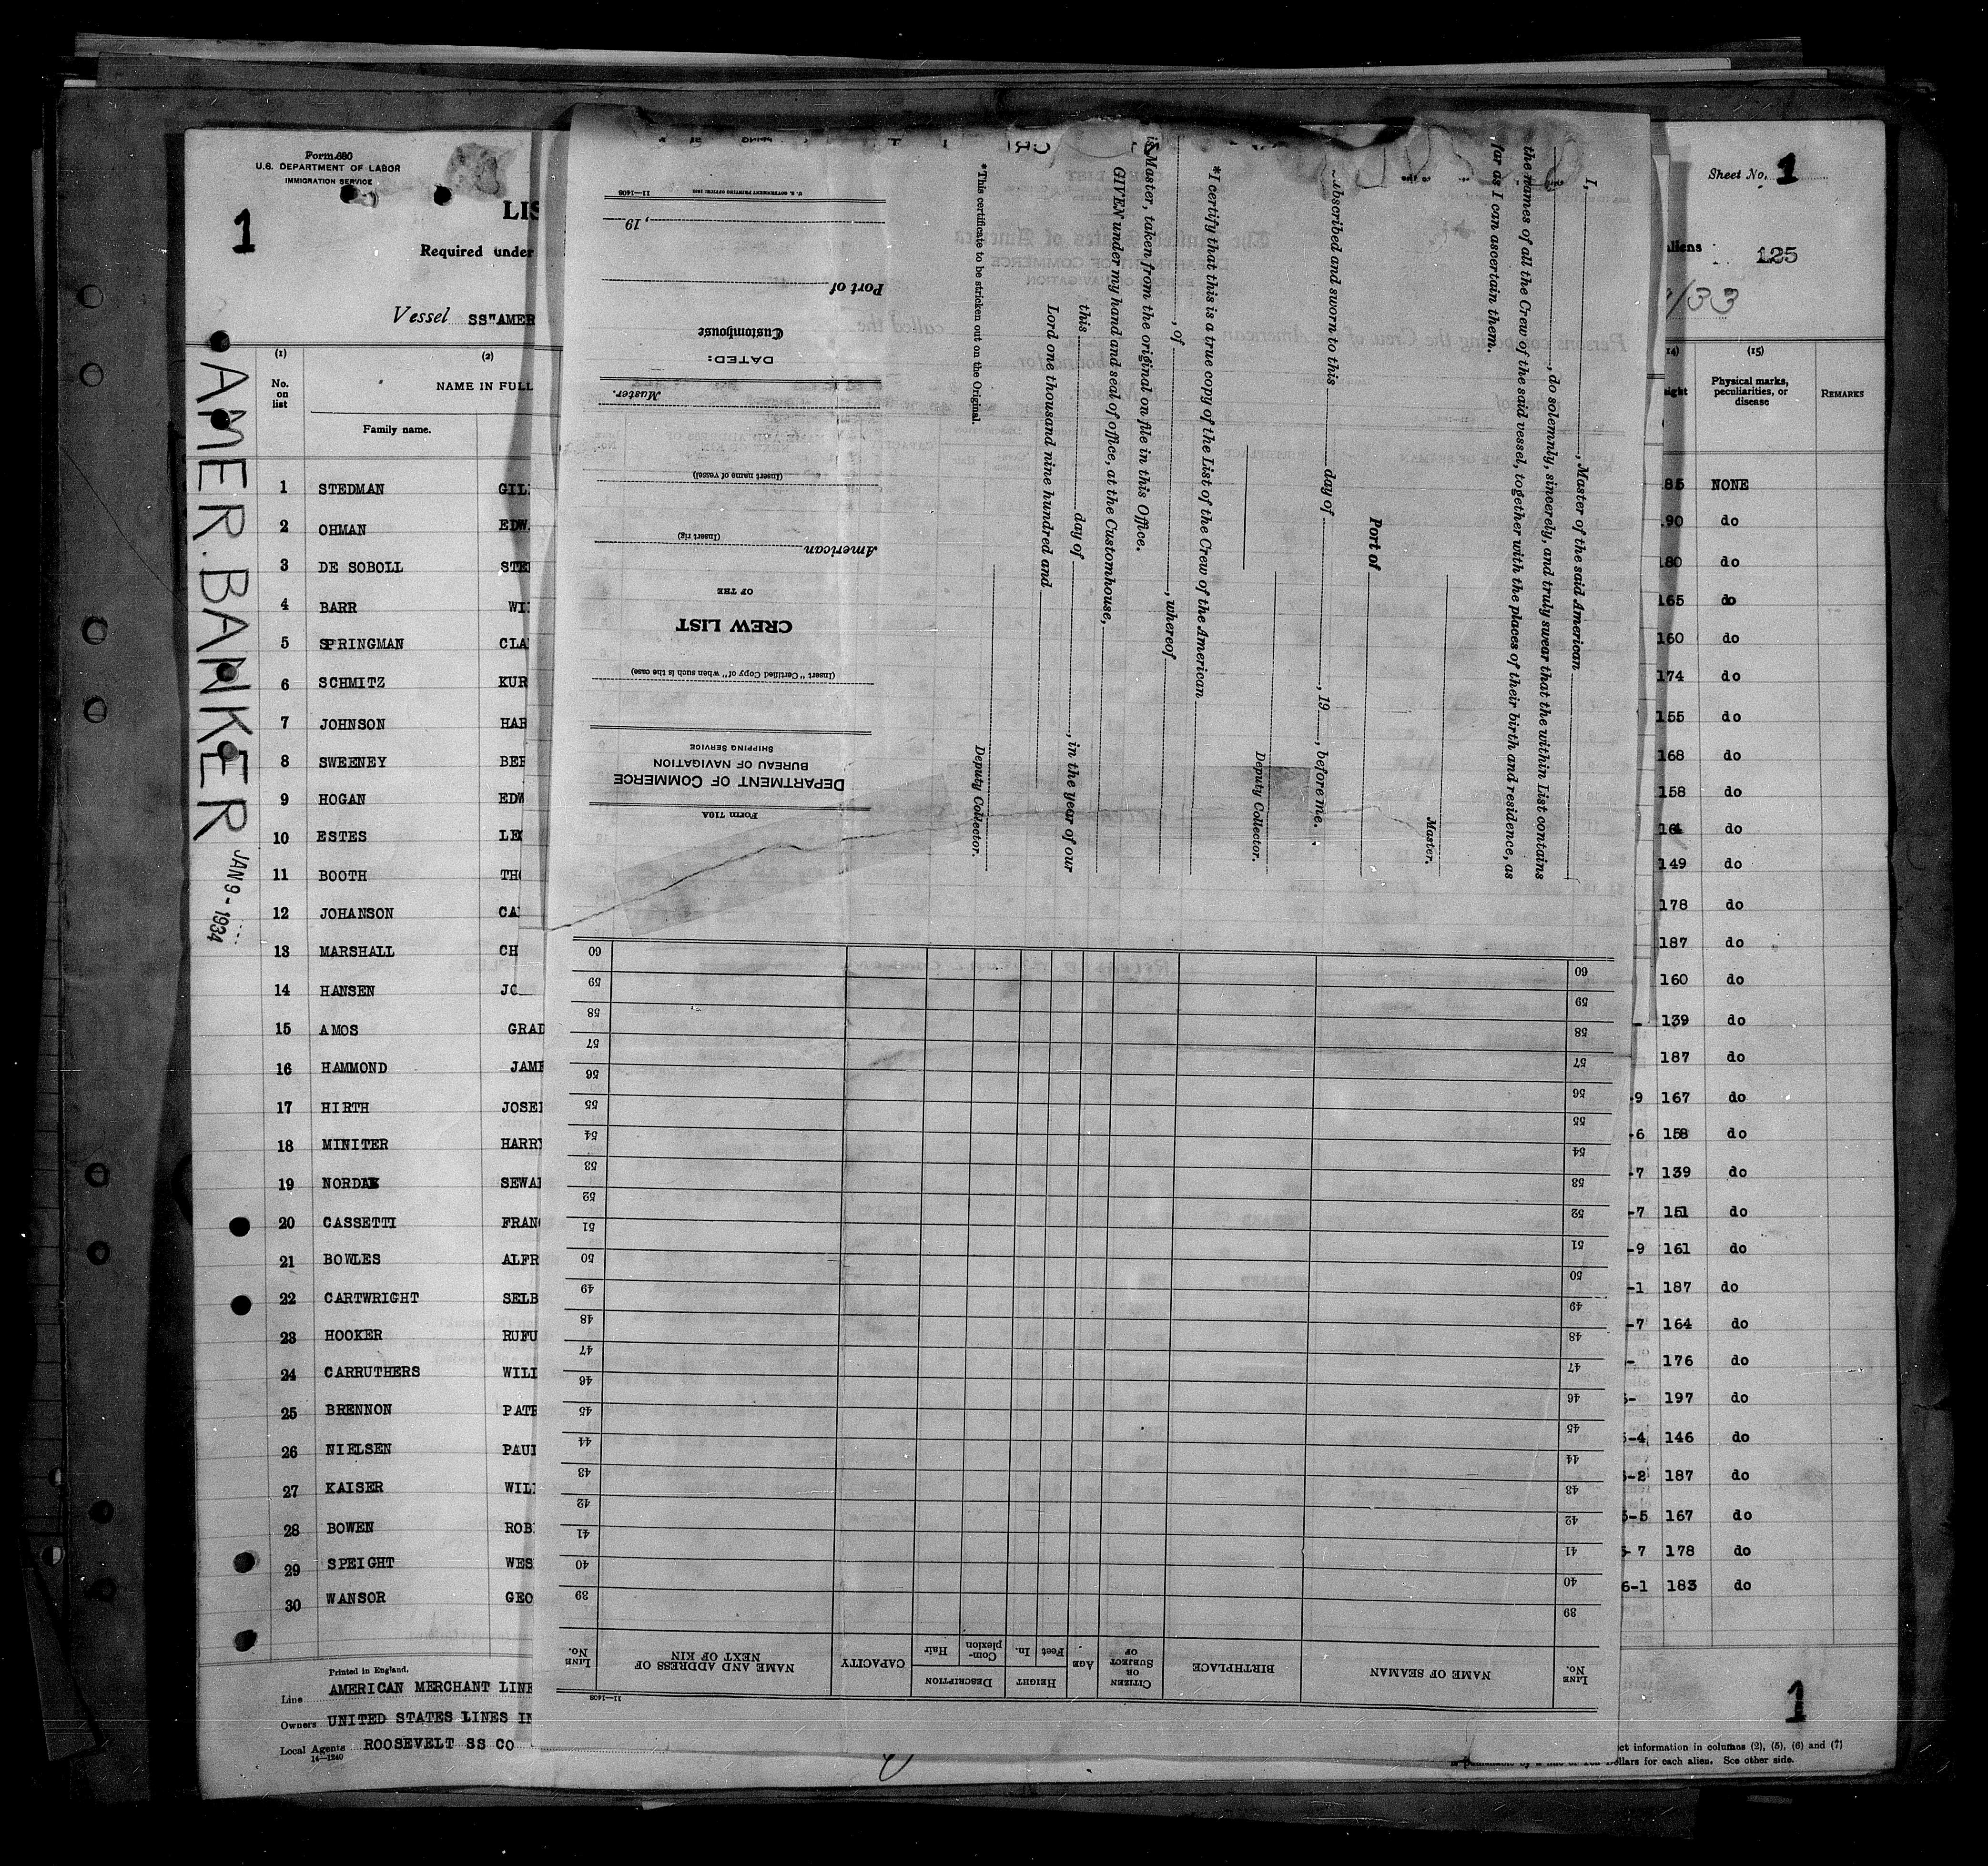 Form 680
U.S. DEPARTMENT OF LABOR
IMMIGRATION SERVICE
1
LIS
Required under
Vessel SS"AMER
AMER. BANKER JAN 9 - 1934
Sheet No. 1
Aliens
125
/33
(1) (2)
No. on list
NAME IN FULL
Family name.
(14) (15)
Physical marks, peculiarities, or disease
REMARKS
1 STEDMAN GIL 185 NONE
2 OHMAN EDW 190 do
3 DE SOBOLL STE 180 do
4 BARR WI 165 do
5 SPRINGMAN CLA 160 do
6 SCHMITZ KUR 174 do
7 JOHNSON HAR 155 do
8 SWEENEY BER 168 do
9 HOGAN EDW 158 do
10 ESTES LE 164 do
11 BOOTH TH 149 do
12 JOHANSON CA 178 do
13 MARSHALL CH 187 do
14 HANSEN JO 160 do
15 AMOS GRAD 139 do
16 HAMMOND JAME 187 do
17 HIRTH JOSE -9 167 do
18 MINITER HARRY -6 158 do
19 NORDAK SEWA -7 139 do
20 CASSETTI FRAN -7 151 do
21 BOWLES ALFR -9 161 do
22 CARTWRIGHT SELB -1 187 do
23 HOOKER RUFU -7 164 do
24 CARRUTHERS WILI - 176 do
25 BRENNON PATR - 197 do
26 NIELSEN PAUL 5-4 146 do
27 KAISER WIL 5-2 187 do
28 BOWEN ROB 5-5 167 do
29 SPEIGHT WES 5-7 178 do
30 WANSOR GEO 6-1 183 do
Printed in England.
Line AMERICAN MERCHANT LINE
Owners UNITED STATES LINES IN
Local Agents ROOSEVELT SS CO
14—1240
1
ct information in columns (2), (5), (6) and (7)
Dollars for each alien. See other side.
I, , Master of the said American
, do solemnly, sincerely, and truly swear that the within List contains
the names of all the Crew of the said vessel, together with the places of their birth and residence, as
far as I can ascertain them.
Master.
Port of
Subscribed and sworn to this day of , 19 , before me.
Deputy Collector.
*I certify that this is a true copy of the List of the Crew of the American
, of , whereof
is Master, taken from the original on file in this Office.
GIVEN under my hand and seal of office, at the Customhouse,
this day of , in the year of our
Lord one thousand nine hundred and
Deputy Collector.
*This certificate to be stricken out on the Original.
Form 710A
DEPARTMENT OF COMMERCE
BUREAU OF NAVIGATION
SHIPPING SERVICE
(Insert "Certified Copy of" when such is the case)
CREW LIST
OF THE
American
(Insert rig)
(Insert name of vessel)
Master.
DATED:
Customhouse
Port of
, 19
U. S. GOVERNMENT PRINTING OFFICE 11—1408
11—1408
LINE No. NAME OF SEAMAN BIRTHPLACE CITIZEN OR SUBJECT OF AGE HEIGHT Feet In. DESCRIPTION Complexion Hair CAPACITY NAME AND ADDRESS OF NEXT OF KIN LINE No.
39 39
40 40
41 41
42 42
43 43
44 44
45 45
46 46
47 47
48 48
49 49
50 50
51 51
52 52
53 53
54 54
55 55
56 56
57 57
58 58
59 59
60 60